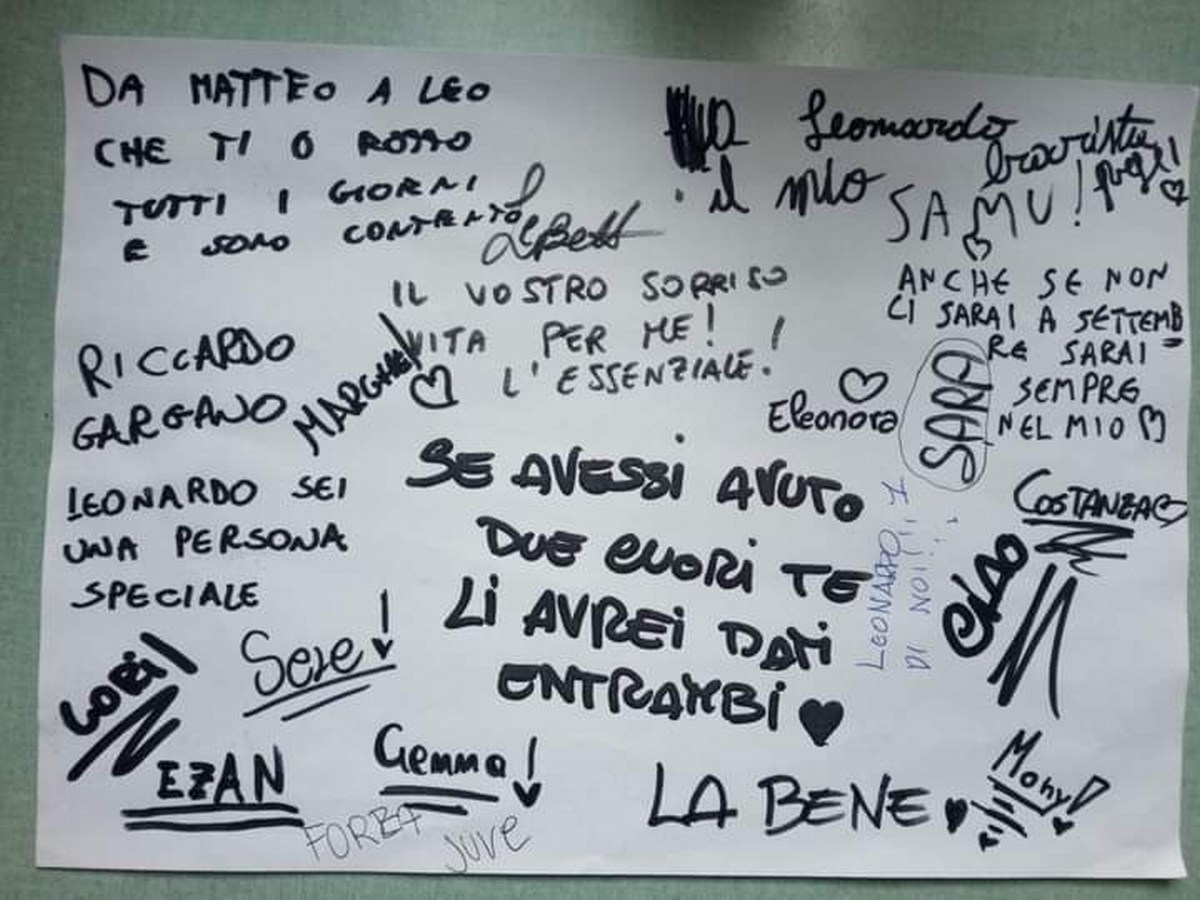 DA MATTEO A LEO
CHE TI O ROTTO
TUTTI I GIORNI
E SONO CONTENTO
Leonardo
il mio
SAMU!
ANCHE SE NON
CI SARAI A SETTEMB
RE SARAI
SEMPRE
NEL MIO
SARA
IL VOSTRO SORRISO
VITA PER ME!
L'ESSENZIALE!
RICCARDO
GARGANO
MARGHE
Eleonora
LEONARDO SEI
UNA PERSONA
SPECIALE
SE AVESSI AVUTO
DUE CUORI TE
LI AVREI DATI
ENTRAMBI
LEONARDO 1
DI NOI!!
COSTANZA
CIAO
LORI
Sere
EZAN
Gemma
FORZA
JUVE
LA BENE
Mony